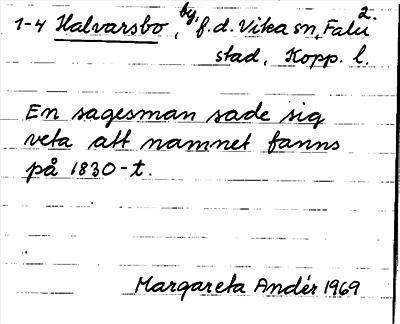 2.
1-4 Halvarsbo, by, f.d. Vika sn, Falu
stad, Kopp. l.
En sagesman sade sig
veta att namnet fanns
på 1830-t.
Margareta Andér 1969